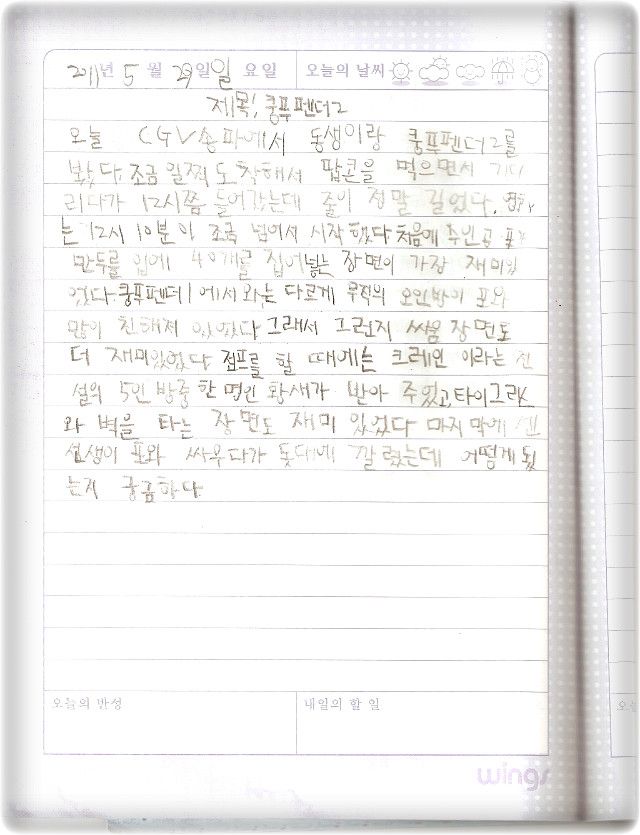 2011년 5월 29일 일요일 오늘의 날씨
제목, 쿵푸펜더2
오늘 CGV송파에서 동생이랑 쿵푸펜더2를
봤다 조금 일찍 도착해서 팝콘을 먹으면서 기다
리다가 12시쯤 들어갔는데 줄이 정말 길었다.
는 12시 10분이 조금 넘어서 시작했다 처음에 주인공 포가
만두를 입에 40개를 집어넣는 장면이 가장 재미있
었다 쿵푸펜더1에서와는 다르게 무적의 오인방이 포와
많이 친해져 있었다 그래서 그런지 싸움 장면도
더 재미있었다 점프를 할 때에는 크레인 이라는 전
설의 5인방중 한 명인 황새가 받아 주었고, 타이그리스
와 벽을 타는 장면도 재미 있었다 마지막에
선생이 포와 싸우다가 돛대에 깔렸는데 어떻게 됬
는지 궁금하다
오늘의 반성 내일의 할 일
wings